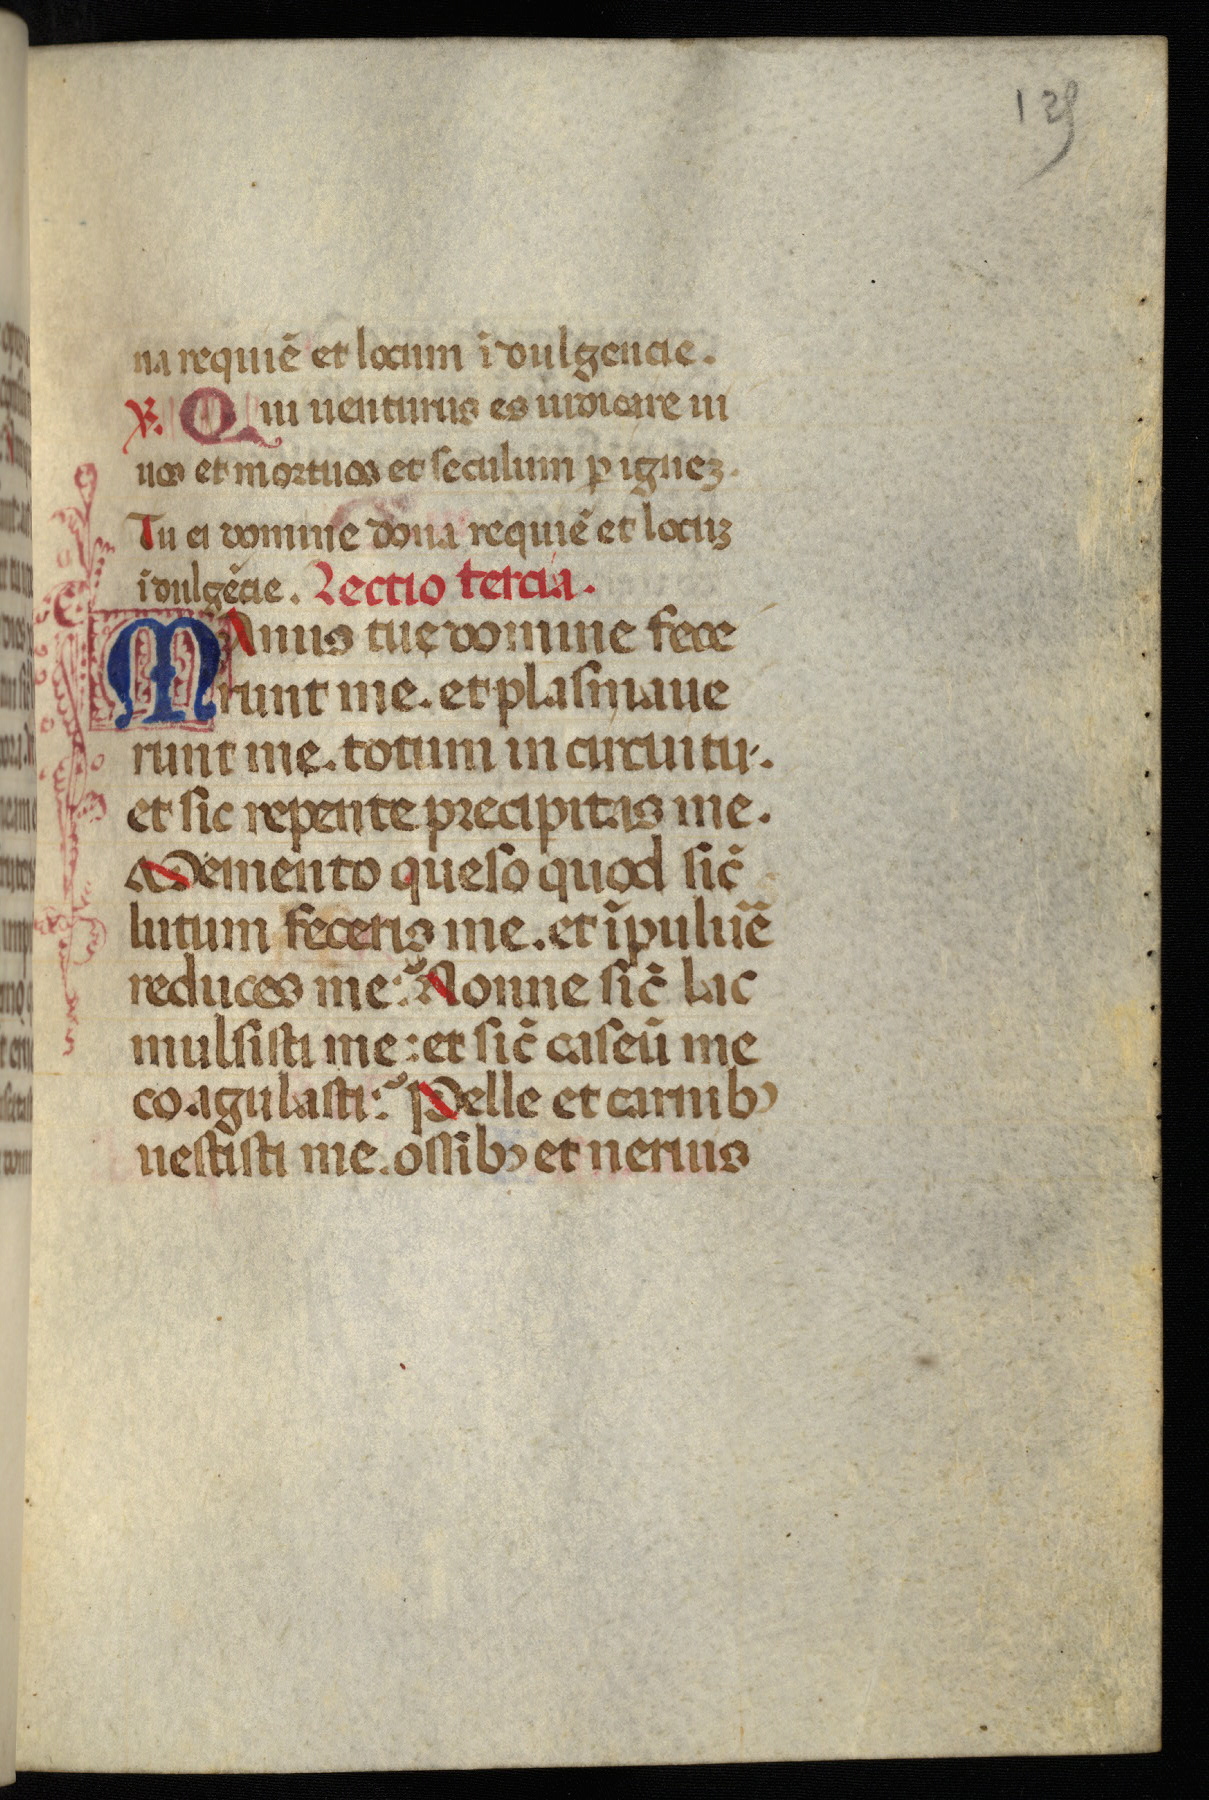 129
na requiē et locum īdulgencie.
℣. Qui uenturus es iudicare ui
uos et mortuos et seculum p ignez.
Tu ei domine dona requiē et locuz
īdulgēcie. Lectio tercia.
MAnus tue domine fece
runt me. et plasmaue
runt me. totum in circuitu.
et sic repente precipitas me.
Memento queso quod sic̄
lutum feceris me. et ī puluē
reduces me: Nonne sic̄ lac
mulsisti me: et sic̄ caseū me
coagulasti: Pelle et carnibꝫ
uestisti me. ossibꝫ et neruis